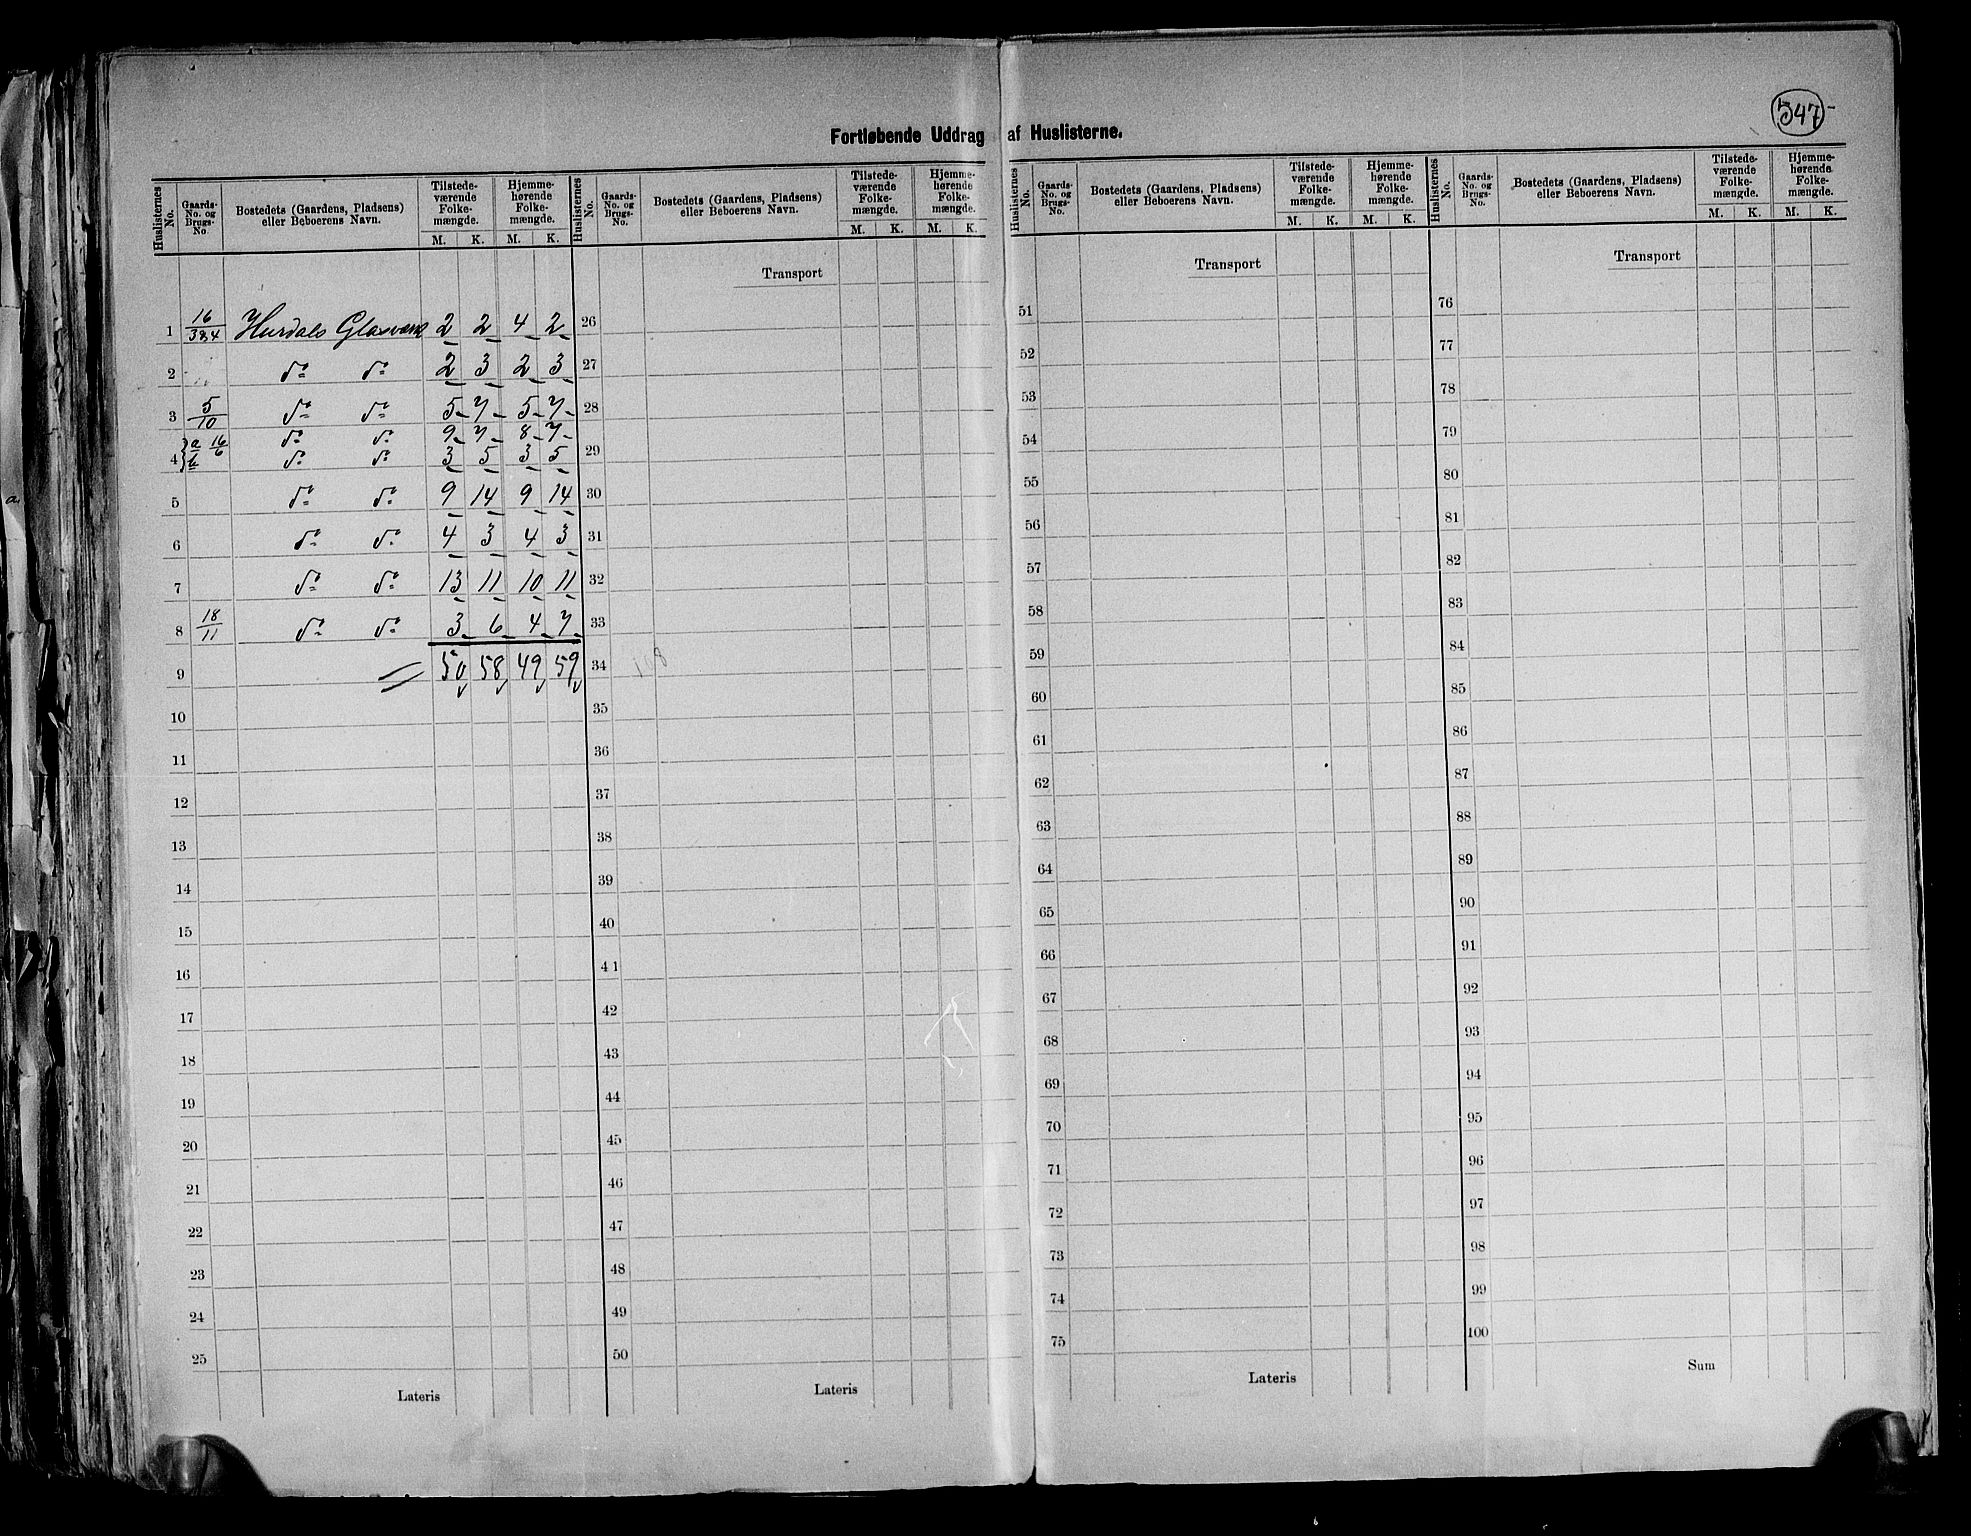 547
Fortløbende Uddrag af Huslisterne.
Huslisternes No. | Gaards-No. og Brugs-No. | Bostedets (Gaardens, Pladsens) eller Beboerens Navn. | Tilstedeværende Folkemængde. M. K. | Hjemmehørende Folkemængde. M. K.
Huslisternes No. | Gaards-No. og Brugs-No. | Bostedets (Gaardens, Pladsens) eller Beboerens Navn. | Tilstedeværende Folkemængde. M. K. | Hjemmehørende Folkemængde. M. K.
Huslisternes No. | Gaards-No. og Brugs-No. | Bostedets (Gaardens, Pladsens) eller Beboerens Navn. | Tilstedeværende Folkemængde. M. K. | Hjemmehørende Folkemængde. M. K.
Huslisternes No. | Gaards-No. og Brugs-No. | Bostedets (Gaardens, Pladsens) eller Beboerens Navn. | Tilstedeværende Folkemængde. M. K. | Hjemmehørende Folkemængde. M. K.
1 16/3&4 Hurdals Glasværk 2 2 4 2
2 do do 2 3 2 3
3 5/10 do do 5 7 5 7
4 a 16/6 do do 9 7 8 7
b do do 3 5 3 5
5 do do 9 14 9 14
6 do do 4 3 4 3
7 do do 13 11 10 11
8 18/11 do do 3 6 4 7
9 50 58 49 59
10
11
12
13
14
15
16
17
18
19
20
21
22
23
24
25
Lateris
Transport
26
27
28
29
30
31
32
33
34 108
35
36
37
38
39
40
41
42
43
44
45
46
47
48
49
50
Lateris
Transport
51
52
53
54
55
56
57
58
59
60
61
62
63
64
65
66
67
68
69
70
71
72
73
74
75
Lateris
Transport
76
77
78
79
80
81
82
83
84
85
86
87
88
89
90
91
92
93
94
95
96
97
98
99
100
Sum